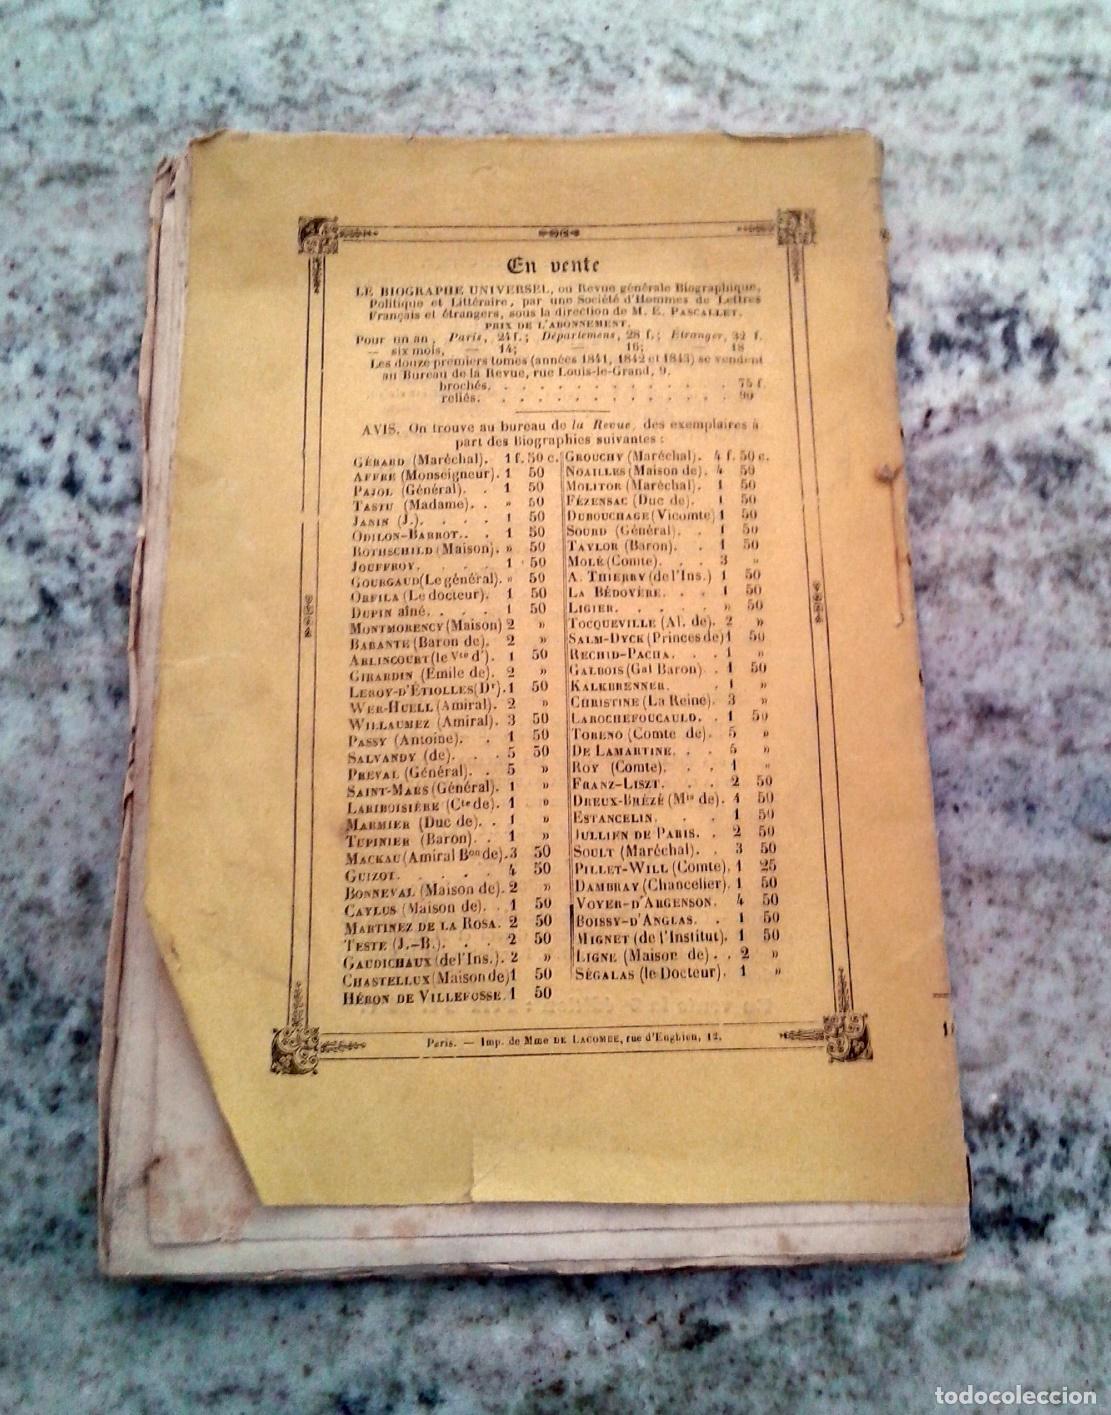 En vente
LE BIOGRAPHE UNIVERSEL, ou Revue générale Biographique,
Politique et Littéraire, par une Société d'Hommes de Lettres
Français et étrangers, sous la direction de M. E. PASCALLET.
PRIX DE L'ABONNEMENT.
Pour un an, Paris, 24 f.; Départemens, 28 f.; Étranger, 32 f.
— six mois, — 14; — 16; — 18
Les douze premiers tomes (années 1841, 1842 et 1843) se vendent
au Bureau de la Revue, rue Louis-le-Grand, 9,
brochés. . . . . . . . . . . . . 75 f.
reliés. . . . . . . . . . . . . 90
AVIS. On trouve au bureau de la Revue, des exemplaires à
part des Biographies suivantes :
GÉRARD (Maréchal). 1 f. 50 c.
AFFRE (Monseigneur). 1 50
PAJOL (Général). . 1 50
TASTU (Madame). . » 50
JANIN (J.). . . . 1 50
ODILON-BARROT. . 1 50
ROTHSCHILD (Maison). » 50
JOUFFROY. . . . . 1 50
GOURGAUD (Le général). » 50
ORFILA (Le docteur). 1 50
DUPIN aîné. . . . 1 50
MONTMORENCY (Maison) 2 »
BARANTE (Baron de). 2 »
ARLINCOURT (le Vte d'). 1 50
GIRARDIN (Émile de). 2 »
LEROY-D'ÉTIOLLES (Dr). 1 50
WER-HUELL (Amiral). 2 »
WILLAUMEZ (Amiral). 3 50
PASSY (Antoine). . 1 50
SALVANDY (de). . . 5 50
PREVAL (Général). . 5 »
SAINT-MARS (Général). 1 »
LARIBOISIÈRE (Cte de). 1 »
MARMIER (Duc de). . 1 »
TUPINIER (Baron). . 1 »
MACKAU (Amiral Bon de). 3 50
GUIZOT. . . . . 4 50
BONNEVAL (Maison de). 2 »
CAYLUS (Maison de). . 1 50
MARTINEZ DE LA ROSA. 2 50
TESTE (J.-B.). . . . 2 50
GAUDICHAUX (de l'Ins.). 2 »
CHASTELLUX (Maison de) 1 50
HÉRON DE VILLEFOSSE. 1 50
GROUCHY (Maréchal). 4 f. 50 c.
NOAILLES (Maison de). 4 50
MOLITOR (Maréchal). 1 50
FÉZENSAC (Duc de). 1 50
DUBOUCHAGE (Vicomte) 1 50
SOURD (Général). . 1 50
TAYLOR (Baron). . 1 50
MOLÉ (Comte). . . 3 »
A. THIERRY (de l'Ins.) 1 50
LA BÉDOYÈRE. . . 1 50
LIGIER. . . . . » 50
TOCQUEVILLE (Al. de). 2 »
SALM-DYCK (Princes de) 1 50
RECHID-PACHA. . . 1 »
GALBOIS (Gal Baron) . 1 50
KALKBRENNER. . 1 »
CHRISTINE (La Reine). 3 »
LAROCHEFOUCAULD. . 1 50
TORENO (Comte de). 5 »
DE LAMARTINE. . . 5 »
ROY (Comte). . . 1 »
FRANZ-LISZT. . . . 2 50
DREUX-BRÉZÉ (Mis de). 1 50
ESTANCELIN. . . 1 50
JULLIEN DE PARIS. . 2 50
SOULT (Maréchal). . 3 50
PILLET-WILL (Comte). 1 25
DAMBRAY (Chancelier). 1 50
VOYER-D'ARGENSON. 4 50
BOISSY-D'ANGLAS. . 1 50
MIGNET (de l'Institut). 1 50
LIGNE (Maison de). . 2 »
SÉGALAS (le Docteur). 1 »
Paris. — Imp. de Mme DE LACOMBE, rue d'Enghien, 12.
todocoleccion